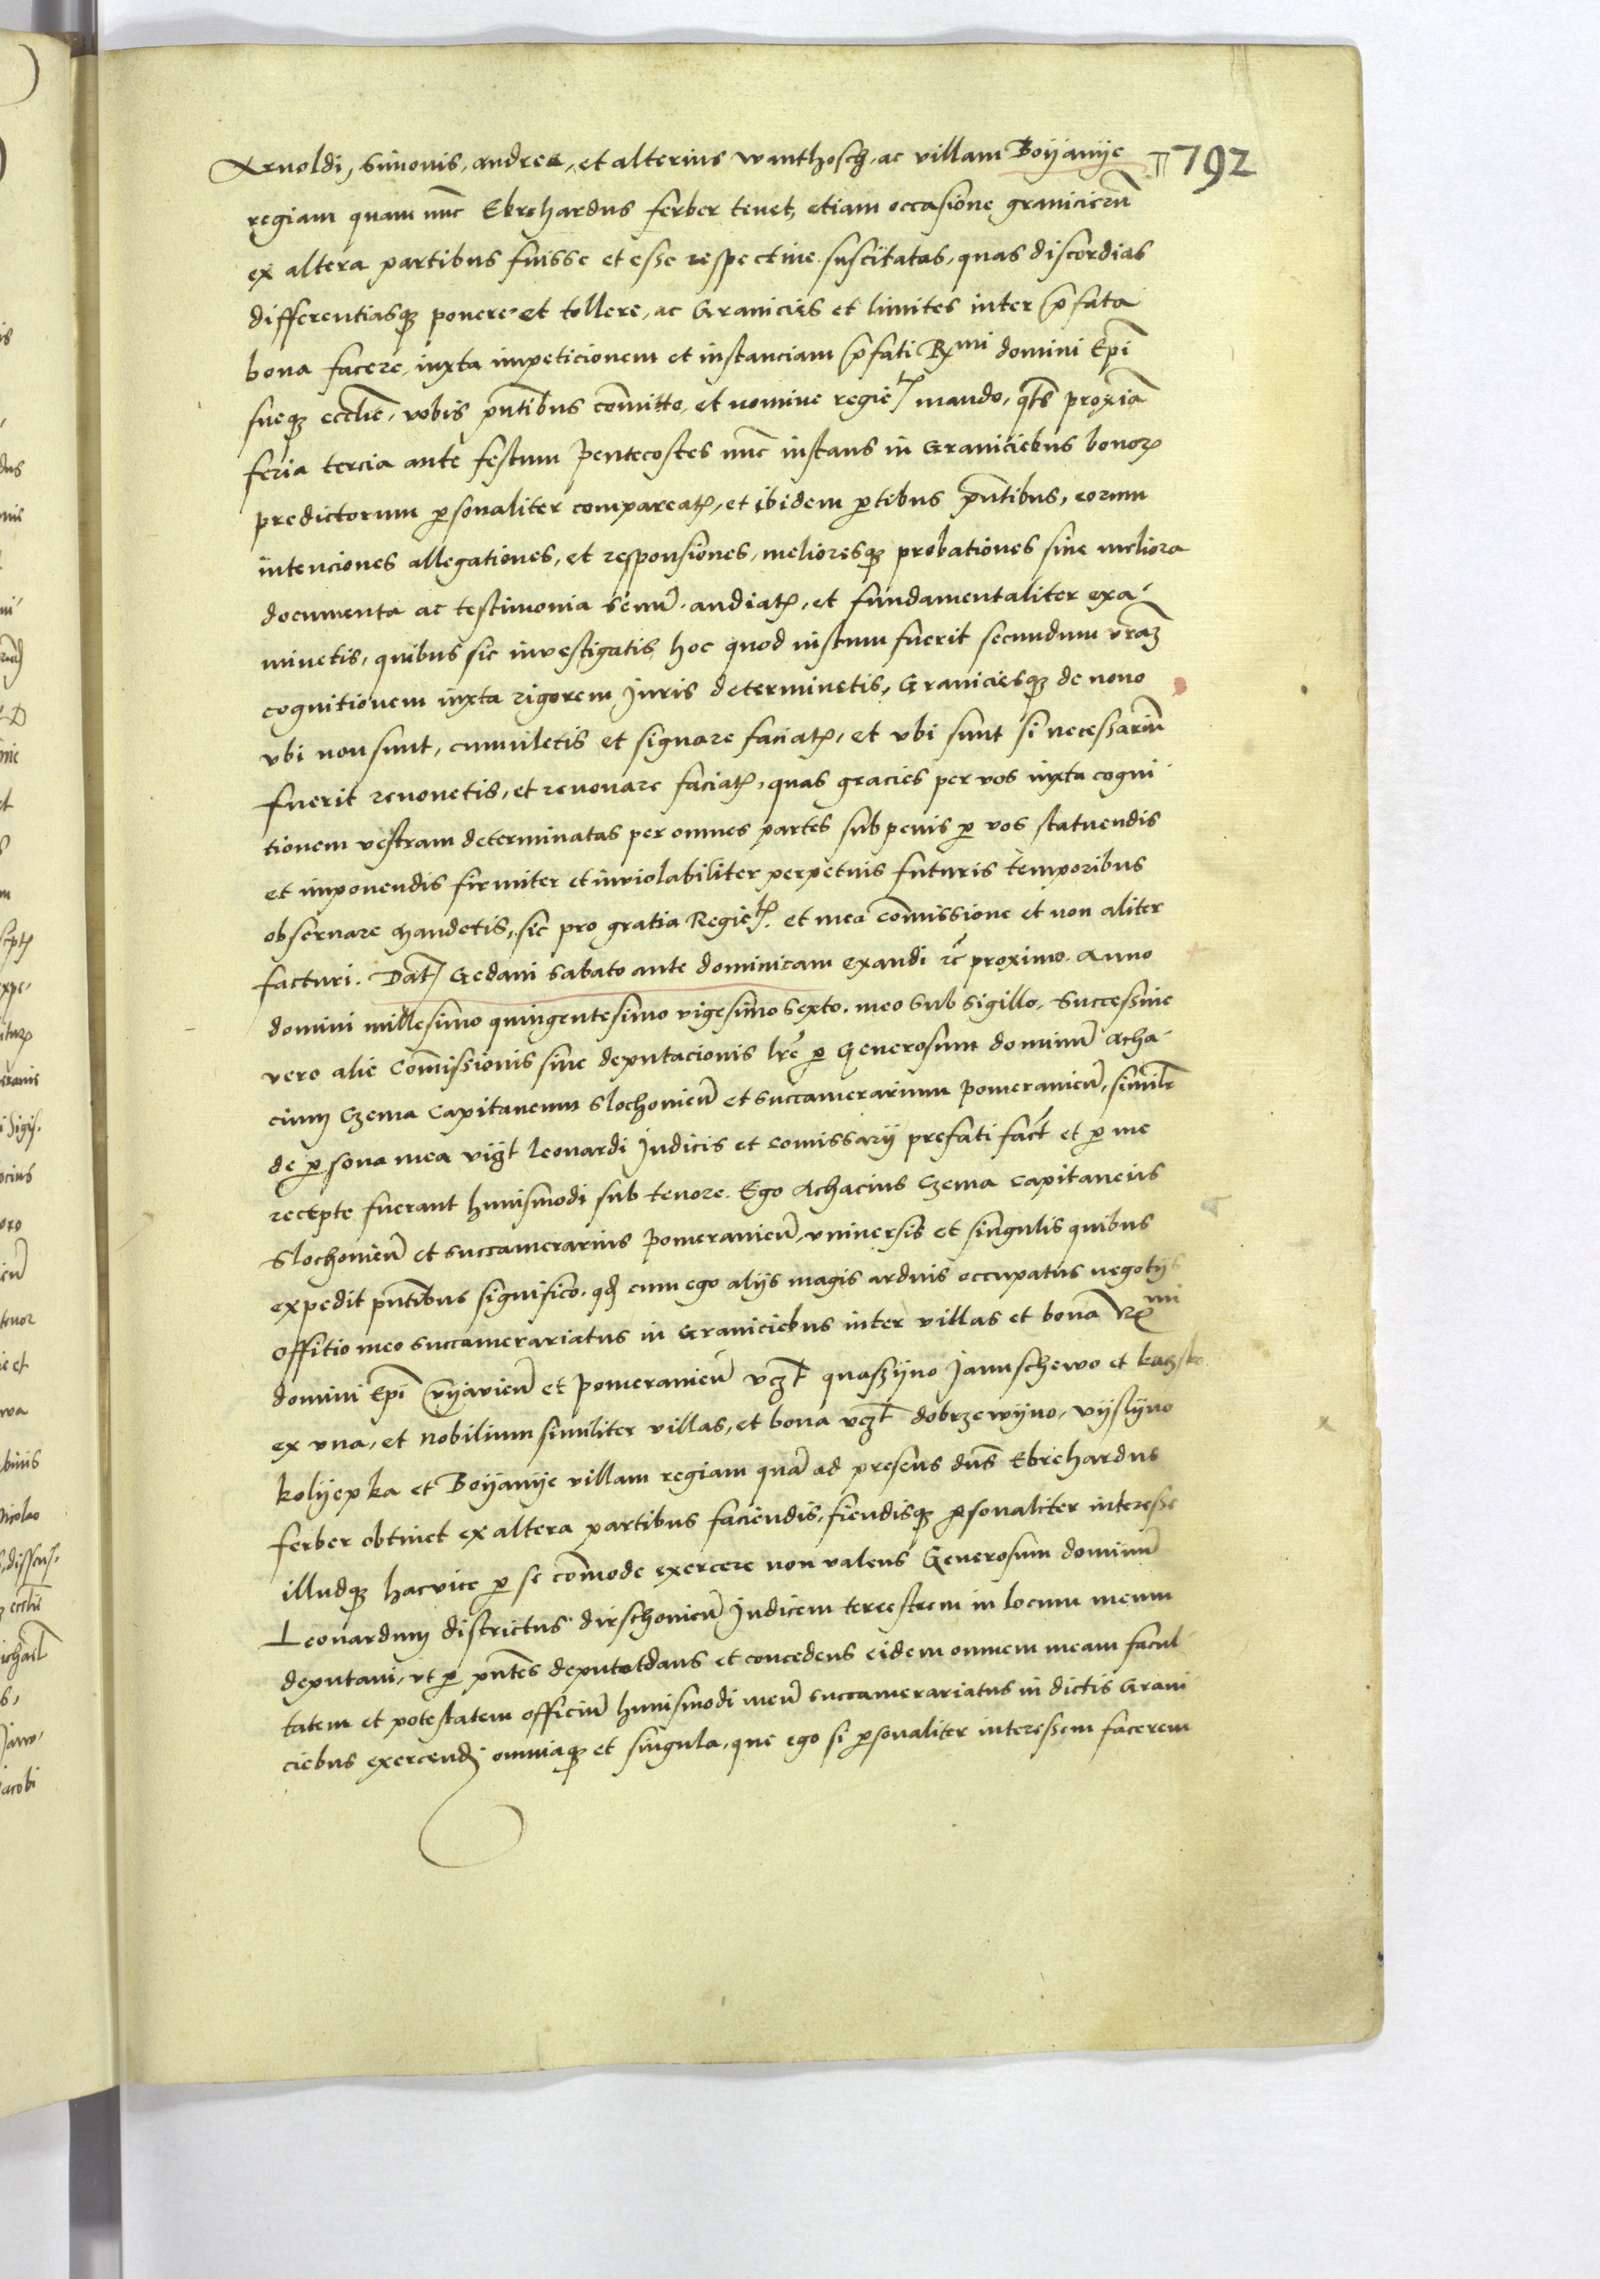 Arnoldi, Simonis, andree, et alterius wanthosch, ac villam Boÿanÿe 792
regiam quam nūc Ebrehardus ferber tenet, etiam occasione granicierū
ex altera partibus fuisse et esse respective suscitatas, quas discordias
differentiasqꝫ ponere et tollere, ac Granicies et limites inter p̄fata
bona facere, iuxta impeticionem et instanciam p̄fati Rmi domini Epī
sueqꝫ eccliē, vobis pn̄tibus com̄itto, et nomine regie mando, qt̄s proxīa
feria tercia ante festum pentecostes nūc instans in Graniciebus bonorꝝ
predictorum ꝑsonaliter compareatꝭ, et ibidem ꝑtibus pn̄tibus, eorum
intenciones allegationes, et responsiones, melioresqꝫ probationes sive meliora
documenta ac testimonia senū audiatꝭ, et fundamentaliter exa-
minetis, quibus sic investigatis, hoc quod iustum fuerit secundum vr̄aꝫ
cognitionem iuxta rigorem Juris determinetis, Graniciesqꝫ de novo
vbi non sunt, cumuletis et signare faciatꝭ, et vbi sunt si necessariū
fuerit renovetis, et renovare faciatꝭ, quas gracies per vos iuxta cogni
tionem vestram determinatas per omnes partes sub penis ꝑ vos statuendis
et imponendis firmiter et inviolabiliter perpetuis futuris temporibus
observare mandetis, sic pro gratia Regie. et mea com̄issione et non aliter
facturi. Datꝭ Gedani sabato ante dominicam exaudi proximo. Anno
domini millesimo quingentesimo vigesimo sexto. meo sub sigillo. Successive
vero alie Com̄issionis sive deputacionis lr̄e ꝑ Generosum dominū Acha-
cium Czema Capitaneum Slochovien̄ et succamerarium pomeranien̄, simil̄r
de ꝑsona mea vigt Leonardi Judicis et comissarij prefati fact̄ et ꝑ me
recepte fuerant huiusmodi sub tenore. Ego Achacius Czema Capitaneus
Slochovien̄ et succamerarius pomeranien̄, vniversis et singulis quibus
expedit pn̄tibus significo, qđ cum ego alijs magis arduis occupatus negotijs
offitio meo succamerariatus in Graniciebus inter villas et bona Rmi
domini Epī Vlÿavien̄ et pomeranien̄ vcꝫt quaszÿno Januschewo et
ex vna, et nobilium similiter villas, et bona vcꝫt dobrzewÿno, vÿslÿno
kolÿepka et Boÿanÿe villam regiam quā ad presens dn̄s Ebrehardus
ferber obtinet ex altera partibus faciendis, fiendisqꝫ ꝑsonaliter interesse
illudqꝫ hac vice ꝑ se com̄ode exercere non valens Generosum dominū
Leonardum districtus dirschovien̄ Judicem terrestrem in locum meum
deputavi, vt ꝑ pn̄tes deputo, dans et concedens eidem omnem meam facul-
tatem et potestatem officiū huiusmodi meū succamerariatus in dictis Grani
ciebus exercendj omniaqꝫ et singula, que ego si ꝑsonaliter interessem facerem